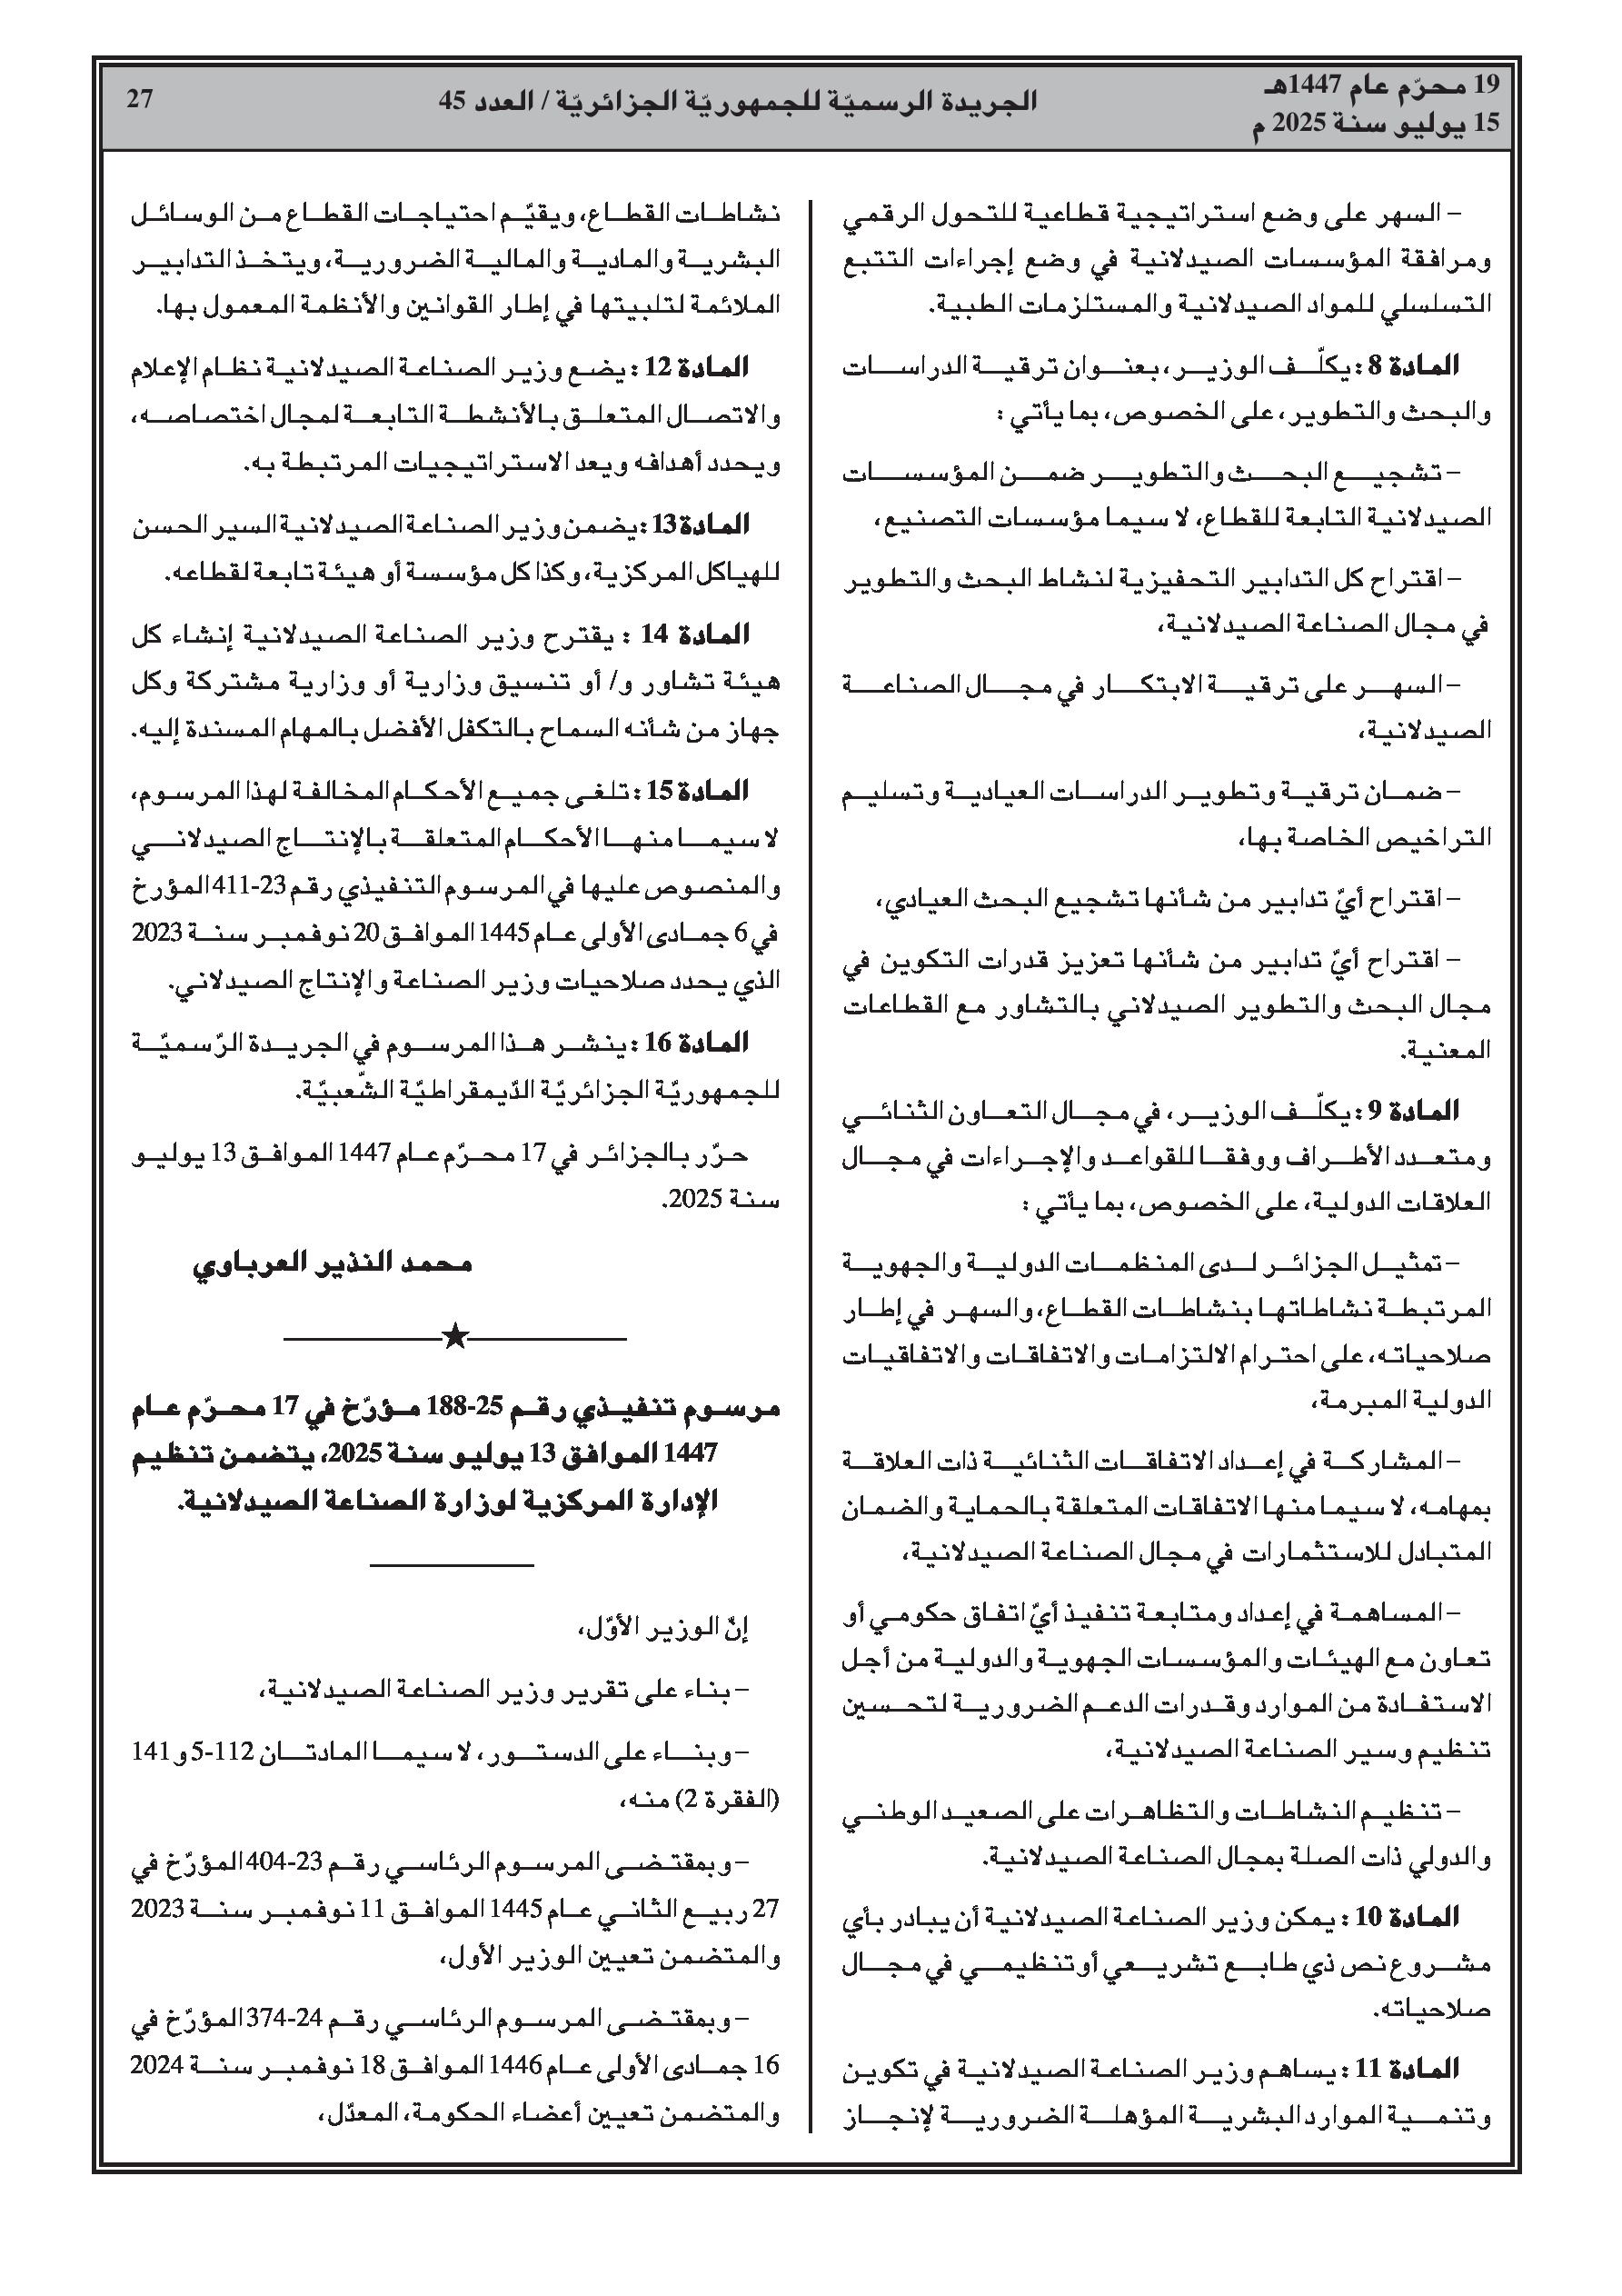 19 محرّم عام 1447هـ
15 يوليو سنة 2025 م
الجريدة الرسميّة للجمهوريّة الجزائريّة / العدد 45
27
– السهر على وضع استراتيجية قطاعية للتحول الرقمي
ومرافقة المؤسسات الصيدلانية في وضع إجراءات التتبع
التسلسلي للمواد الصيدلانية والمستلزمات الطبية.
المادة 8 : يكلّف الوزير، بعنوان ترقية الدراسات
والبحث والتطوير، على الخصوص، بما يأتي :
– تشجيع البحث والتطوير ضمن المؤسسات
الصيدلانية التابعة للقطاع، لا سيما مؤسسات التصنيع،
– اقتراح كل التدابير التحفيزية لنشاط البحث والتطوير
في مجال الصناعة الصيدلانية،
– السهر على ترقية الابتكار في مجال الصناعة
الصيدلانية،
– ضمان ترقية وتطوير الدراسات العيادية وتسليم
التراخيص الخاصة بها،
– اقتراح أيّ تدابير من شأنها تشجيع البحث العيادي،
– اقتراح أيّ تدابير من شأنها تعزيز قدرات التكوين في
مجال البحث والتطوير الصيدلاني بالتشاور مع القطاعات
المعنية.
المادة 9 : يكلّف الوزير، في مجال التعاون الثنائي
ومتعدد الأطراف ووفقا للقواعد والإجراءات في مجال
العلاقات الدولية، على الخصوص، بما يأتي :
– تمثيل الجزائر لدى المنظمات الدولية والجهوية
المرتبطة نشاطاتها بنشاطات القطاع، والسهر في إطار
صلاحياته، على احترام الالتزامات والاتفاقات والاتفاقيات
الدولية المبرمة،
– المشاركة في إعداد الاتفاقات الثنائية ذات العلاقة
بمهامه، لا سيما منها الاتفاقات المتعلقة بالحماية والضمان
المتبادل للاستثمارات في مجال الصناعة الصيدلانية،
– المساهمة في إعداد ومتابعة تنفيذ أيّ اتفاق حكومي أو
تعاون مع الهيئات والمؤسسات الجهوية والدولية من أجل
الاستفادة من الموارد وقدرات الدعم الضرورية لتحسين
تنظيم وسير الصناعة الصيدلانية،
– تنظيم النشاطات والتظاهرات على الصعيد الوطني
والدولي ذات الصلة بمجال الصناعة الصيدلانية.
المادة 10 : يمكن وزير الصناعة الصيدلانية أن يبادر بأي
مشروع نص ذي طابع تشريعي أو تنظيمي في مجال
صلاحياته.
المادة 11 : يساهم وزير الصناعة الصيدلانية في تكوين
وتنمية الموارد البشرية المؤهلة الضرورية لإنجاز
نشاطات القطاع، ويقيّم احتياجات القطاع من الوسائل
البشرية والمادية والمالية الضرورية، ويتخذ التدابير
الملائمة لتلبيتها في إطار القوانين والأنظمة المعمول بها.
المادة 12 : يضع وزير الصناعة الصيدلانية نظام الإعلام
والاتصال المتعلق بالأنشطة التابعة لمجال اختصاصه،
ويحدد أهدافه ويعد الاستراتيجيات المرتبطة به.
المادة 13 : يضمن وزير الصناعة الصيدلانية السير الحسن
للهياكل المركزية، وكذا كل مؤسسة أو هيئة تابعة لقطاعه.
المادة 14 : يقترح وزير الصناعة الصيدلانية إنشاء كل
هيئة تشاور و/ أو تنسيق وزارية أو وزارية مشتركة وكل
جهاز من شأنه السماح بالتكفل الأفضل بالمهام المسندة إليه.
المادة 15 : تلغى جميع الأحكام المخالفة لهذا المرسوم،
لا سيما منها الأحكام المتعلقة بالإنتاج الصيدلاني
والمنصوص عليها في المرسوم التنفيذي رقم 23-411 المؤرخ
في 6 جمادى الأولى عام 1445 الموافق 20 نوفمبر سنة 2023
الذي يحدد صلاحيات وزير الصناعة والإنتاج الصيدلاني.
المادة 16 : ينشر هذا المرسوم في الجريدة الرّسميّة
للجمهوريّة الجزائريّة الدّيمقراطيّة الشّعبيّة.
حرّر بالجزائر في 17 محرّم عام 1447 الموافق 13 يوليو
سنة 2025.
محمد النذير العرباوي
مرسوم تنفيذي رقم 25-188 مؤرّخ في 17 محرّم عام
1447 الموافق 13 يوليو سنة 2025، يتضمن تنظيم
الإدارة المركزية لوزارة الصناعة الصيدلانية.
إنّ الوزير الأوّل،
– بناء على تقرير وزير الصناعة الصيدلانية،
– وبناء على الدستور، لا سيما المادتان 112-5 و 141
(الفقرة 2) منه،
– وبمقتضى المرسوم الرئاسي رقم 23-404 المؤرّخ في
27 ربيع الثاني عام 1445 الموافق 11 نوفمبر سنة 2023
والمتضمن تعيين الوزير الأول،
– وبمقتضى المرسوم الرئاسي رقم 24-374 المؤرّخ في
16 جمادى الأولى عام 1446 الموافق 18 نوفمبر سنة 2024
والمتضمن تعيين أعضاء الحكومة، المعدّل،